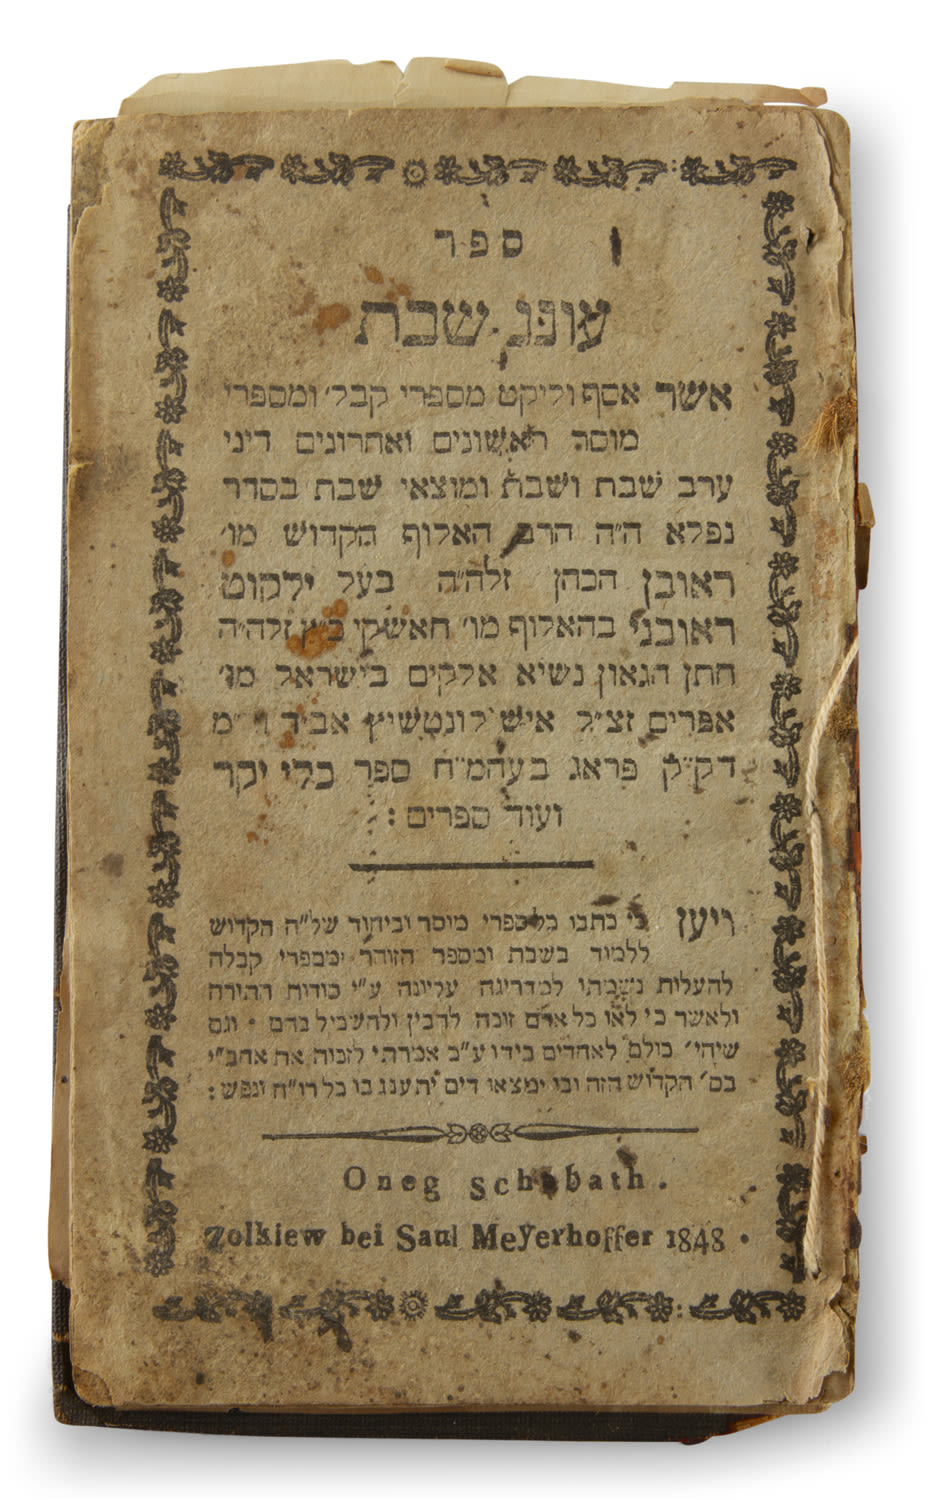 ספר
עונג שבת
אשר אסף וליקט מספרי קבל׳ ומספרי
מוסר ראשונים ואחרונים דיני
ערב שבת ושבת ומוצאי שבת בסדר
נפלא ה״ה הרב האלוף הקדוש מו׳
ראובן הכהן זלה״ה בעל ילקוט
ראובני בהאלוף מו׳ האשקי כ״ץ זלה״ה
חתן הגאון נשיא אלקים בישראל מו׳
אפרים זצ״ל איש לונטשיץ אביד
דק״ק פראג בעהמ״ח ספר כלי יקר
ועוד ספרים :
ויען כי כתבו כל ספרי מוסר וביחוד של״ה הקדוש
ללמוד בשבת ומספר הזוהר ומספרי קבלה
להעלות נשמתי למדריגה עליונה ע״י סודות התורה
ולאשר כי לאו כל אדם זוכה להבין ולהשכיל בהם • וגם
שיהי׳ כולם לאחדים בידו ע״כ אמרתי לזכות את אחב״י
בס׳ הקדוש הזה ובו ימצאו דים יתענג בו כל רו״ח ונפש :
Oneg Schabath .
Zolkiew bei Saul Meyerhoffer 1848 •